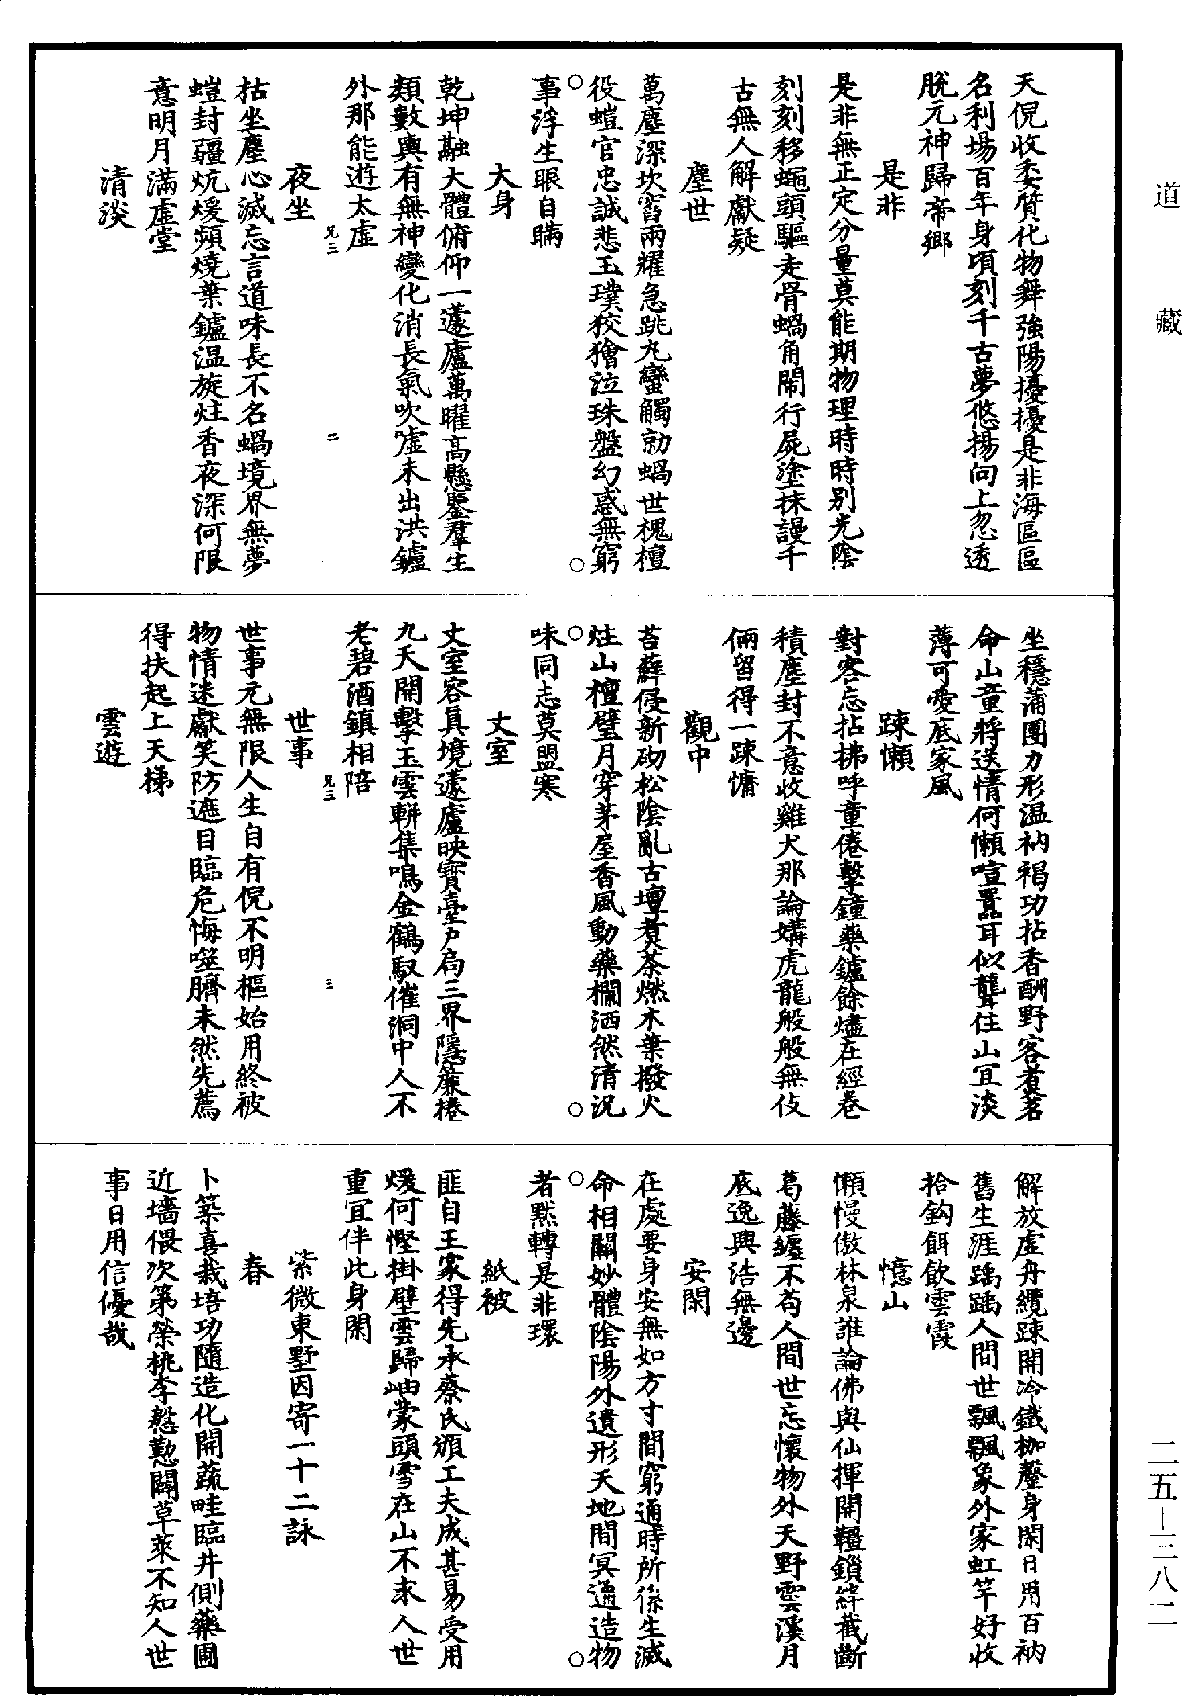 道藏
天倪收委質化物舞強陽擾擾是非海區區
名利場百年身頃刻千古夢悠揚向上忽透
脫元神歸帝鄉
是非
是非無正定分量莫能期物理時時別光陰
刻刻移蠅頭驅走骨蝸角鬧行屍塗抹謾千
古無人解獻疑
塵世
萬塵深坎窞兩耀急跳丸蠻觸勍蝸世槐檀
役螘官忠誠悲玉璞狡獪泣珠盤幻惑無窮
事浮生眼自瞞
大身
乾坤融大體俯仰一蘧廬萬曜高懸鑒羣生
類數輿有無神變化消長氣吹噓未出洪鑪
外那能遊太虛
兄二
二
夜坐
枯坐塵心滅忘言道味長不名蝸境界無夢
螘封疆炕煖頻燒葉鑪温旋炷香夜深何限
意明月滿虛堂
清淡
坐穩蒲團力形温衲褐功拈香酬野客煮茗
命山童將送情何懶喧囂耳似聾住山宜淡
薄可愛底家風
踈懶
對客忘拈拂呼童倦擊鐘藥鑪餘燼在經卷
積塵封不意收雞犬那論媾虎龍般般無伎
倆留得一踈慵
觀中
苔蘚侵新砌松陰亂古壇煮茶燃木葉撥火
炷山檀壁月穿茅屋香風動藥欄洒然清況
味同志莫盟寒
丈室
丈室容真境蘧廬映寶臺戶扃三界隱簾捲
九天開擊玉雲軿集鳴金鶴馭催洞中人不
老碧酒鎮相陪
兄三
三
世事
世事元無限人生自有倪不明樞始用終被
物情迷獻笑防遮目臨危悔噬臍未然先薦
得扶起上天梯
雲遊
解放虛舟纜踈開冷鐵枷塵身閑日用百衲
舊生涯踽踽人間世飄飄象外家虹竿好收
拾鈎餌飲雲霞
憶山
懶慢傲林泉誰論佛與仙揮開韁鎖絆截斷
葛藤纏不苟人間世忘懷物外天野雲溪月
底逸興浩無邊
安閑
在處要身安無如方寸間窮通時所係生滅
命相關妙體陰陽外遺形天地間冥通造物
者默轉是非環
紙被
匪自王家得先承蔡氏頒工夫成甚易受用
煖何慳掛壁雲歸岫蒙頭雪在山不求人世
重宜伴此身閑
紫微東墅因寄一十二詠
春
卜築喜栽培功隨造化開蔬畦臨井側藥圃
近墻偎次第榮桃李慇懃闢草萊不知人世
事日用信優哉
二五—三八二